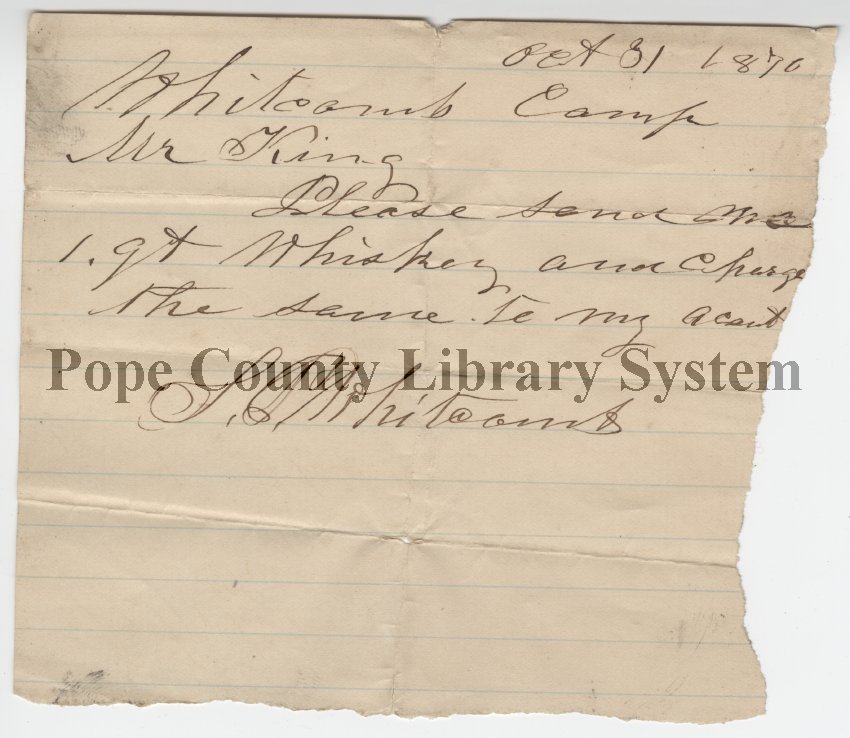 Oct 31 1870
Whitcomb Camp
Mr King
Please send me
1. qt Whiskey and Charge
the same to my acont
Pope County Library System
Whitcomb